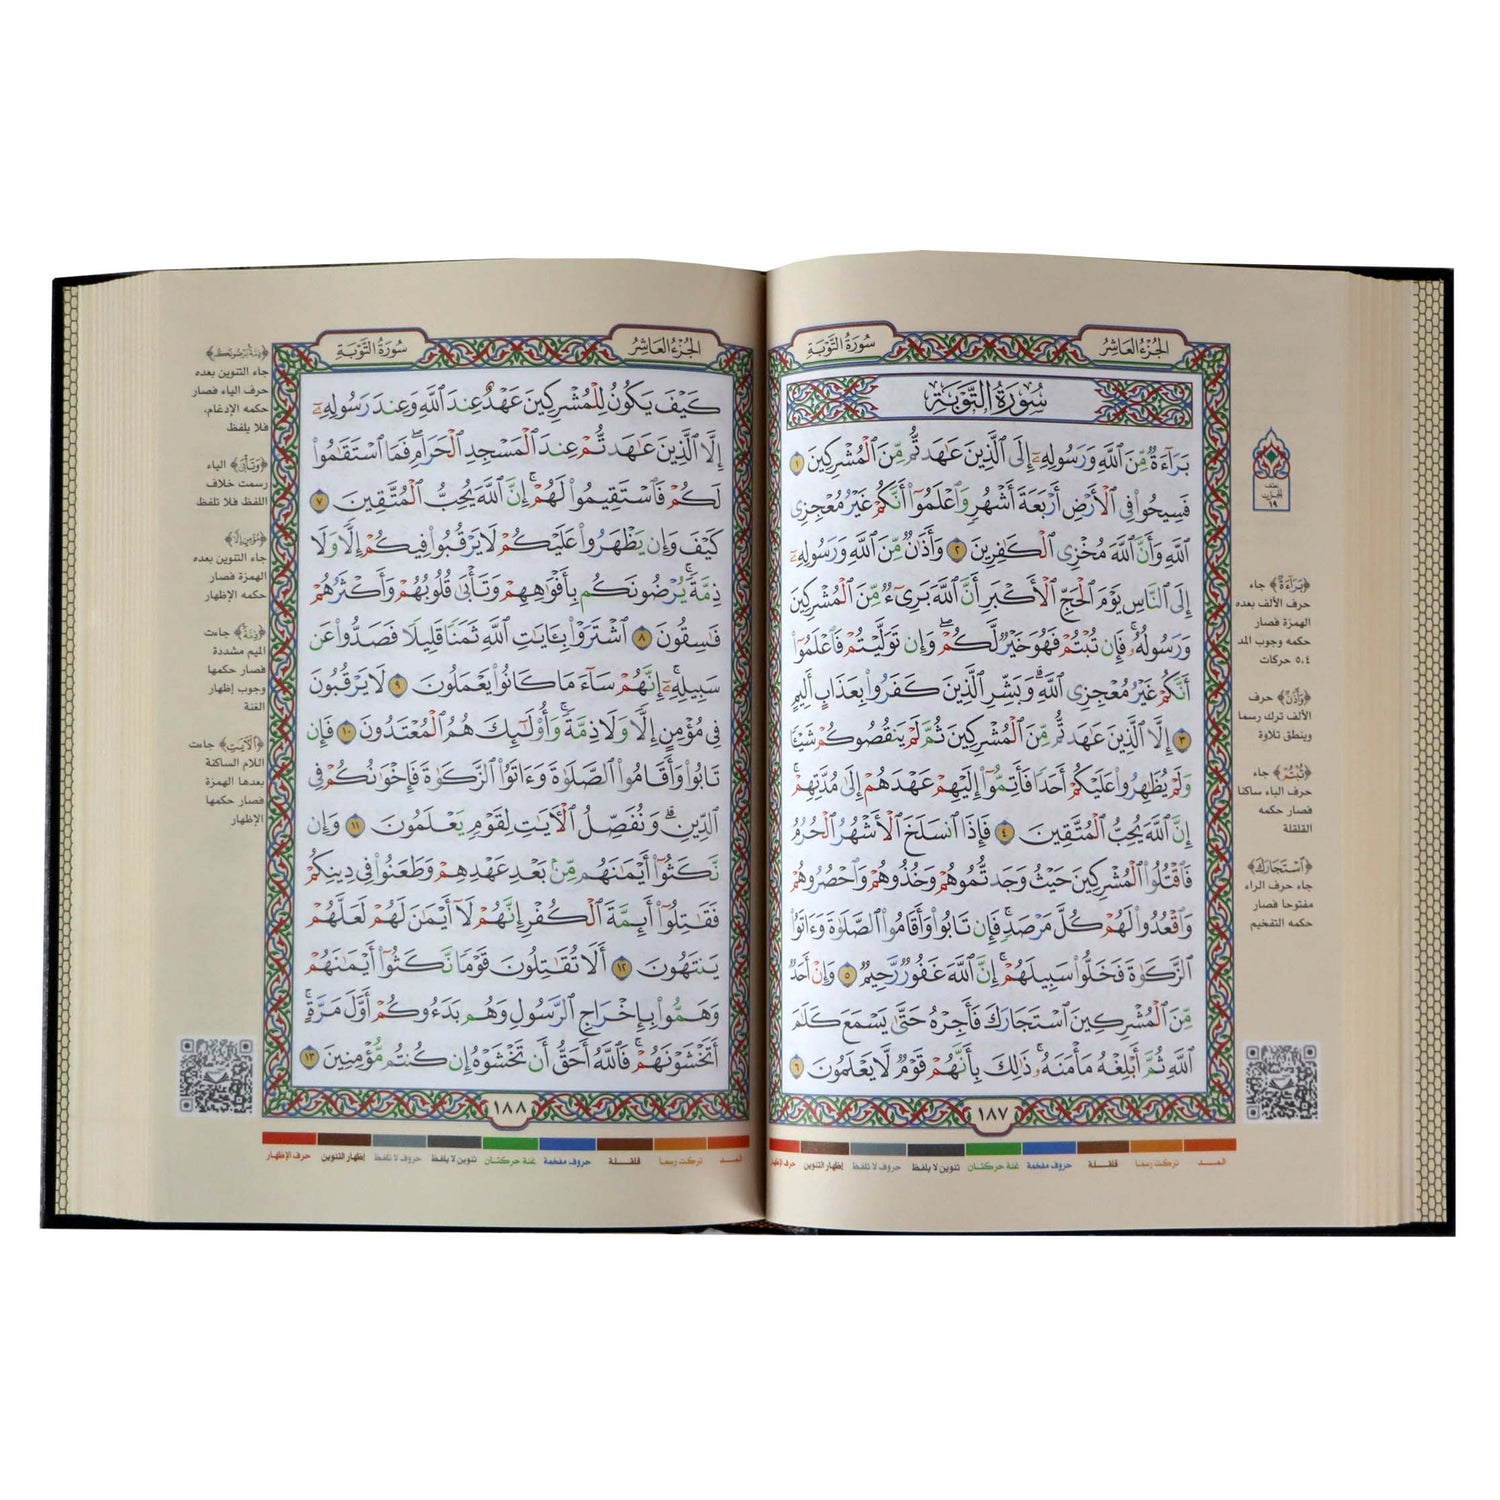 الجزء العاشر
سورة التوبة
سُورَةُ التَّوْبَةِ
بَرَآءَةٌ مِّنَ ٱللَّهِ وَرَسُولِهِۦٓ إِلَى ٱلَّذِينَ عَٰهَدتُّم مِّنَ ٱلْمُشْرِكِينَ ١
فَسِيحُوا۟ فِى ٱلْأَرْضِ أَرْبَعَةَ أَشْهُرٍ وَٱعْلَمُوٓا۟ أَنَّكُمْ غَيْرُ مُعْجِزِى
ٱللَّهِ وَأَنَّ ٱللَّهَ مُخْزِى ٱلْكَٰفِرِينَ ٢ وَأَذَٰنٌ مِّنَ ٱللَّهِ وَرَسُولِهِۦٓ
إِلَى ٱلنَّاسِ يَوْمَ ٱلْحَجِّ ٱلْأَكْبَرِ أَنَّ ٱللَّهَ بَرِىٓءٌ مِّنَ ٱلْمُشْرِكِينَ
وَرَسُولُهُۥ فَإِن تُبْتُمْ فَهُوَ خَيْرٌ لَّكُمْ وَإِن تَوَلَّيْتُمْ فَٱعْلَمُوٓا۟
أَنَّكُمْ غَيْرُ مُعْجِزِى ٱللَّهِ وَبَشِّرِ ٱلَّذِينَ كَفَرُوا۟ بِعَذَابٍ أَلِيمٍ
٣ إِلَّا ٱلَّذِينَ عَٰهَدتُّم مِّنَ ٱلْمُشْرِكِينَ ثُمَّ لَمْ يَنقُصُوكُمْ شَيْـًٔا
وَلَمْ يُظَٰهِرُوا۟ عَلَيْكُمْ أَحَدًا فَأَتِمُّوٓا۟ إِلَيْهِمْ عَهْدَهُمْ إِلَىٰ مُدَّتِهِمْ
إِنَّ ٱللَّهَ يُحِبُّ ٱلْمُتَّقِينَ ٤ فَإِذَا ٱنسَلَخَ ٱلْأَشْهُرُ ٱلْحُرُمُ
فَٱقْتُلُوا۟ ٱلْمُشْرِكِينَ حَيْثُ وَجَدتُّمُوهُمْ وَخُذُوهُمْ وَٱحْصُرُوهُمْ
وَٱقْعُدُوا۟ لَهُمْ كُلَّ مَرْصَدٍ فَإِن تَابُوا۟ وَأَقَامُوا۟ ٱلصَّلَوٰةَ وَءَاتَوُا۟
ٱلزَّكَوٰةَ فَخَلُّوا۟ سَبِيلَهُمْ إِنَّ ٱللَّهَ غَفُورٌ رَّحِيمٌ ٥ وَإِنْ أَحَدٌ
مِّنَ ٱلْمُشْرِكِينَ ٱسْتَجَارَكَ فَأَجِرْهُ حَتَّىٰ يَسْمَعَ كَلَٰمَ
ٱللَّهِ ثُمَّ أَبْلِغْهُ مَأْمَنَهُۥ ذَٰلِكَ بِأَنَّهُمْ قَوْمٌ لَّا يَعْلَمُونَ ٦
١٨٧
الحزب
١٩
﴿بَرَآءَةٌ﴾ جاء
حرف الألف بعده
الهمزة فصار
حكمه وجوب المد
٥،٤ حركات
﴿وَأَذَٰنٌ﴾ حرف
الألف ترك رسما
وينطق تلاوة
﴿تُبْتُمْ﴾ جاء
حرف الباء ساكنا
فصار حكمه
القلقلة
﴿ٱسْتَجَارَكَ﴾
جاء حرف الراء
مفتوحا فصار
حكمه التفخيم
المد تركت رسما قلقلة حروف مفخمة غنة حركتان تنوين لا يلفظ حروف لا تلفظ إظهار التنوين حرف الإظهار
الجزء العاشر
سورة التوبة
كَيْفَ يَكُونُ لِلْمُشْرِكِينَ عَهْدٌ عِندَ ٱللَّهِ وَعِندَ رَسُولِهِۦٓ
إِلَّا ٱلَّذِينَ عَٰهَدتُّمْ عِندَ ٱلْمَسْجِدِ ٱلْحَرَامِ فَمَا ٱسْتَقَٰمُوا۟
لَكُمْ فَٱسْتَقِيمُوا۟ لَهُمْ إِنَّ ٱللَّهَ يُحِبُّ ٱلْمُتَّقِينَ ٧
كَيْفَ وَإِن يَظْهَرُوا۟ عَلَيْكُمْ لَا يَرْقُبُوا۟ فِيكُمْ إِلًّا وَلَا
ذِمَّةً يُرْضُونَكُم بِأَفْوَٰهِهِمْ وَتَأْبَىٰ قُلُوبُهُمْ وَأَكْثَرُهُمْ
فَٰسِقُونَ ٨ ٱشْتَرَوْا۟ بِـَٔايَٰتِ ٱللَّهِ ثَمَنًا قَلِيلًا فَصَدُّوا۟ عَن
سَبِيلِهِۦٓ إِنَّهُمْ سَآءَ مَا كَانُوا۟ يَعْمَلُونَ ٩ لَا يَرْقُبُونَ
فِى مُؤْمِنٍ إِلًّا وَلَا ذِمَّةً وَأُو۟لَٰٓئِكَ هُمُ ٱلْمُعْتَدُونَ ١٠ فَإِن
تَابُوا۟ وَأَقَامُوا۟ ٱلصَّلَوٰةَ وَءَاتَوُا۟ ٱلزَّكَوٰةَ فَإِخْوَٰنُكُمْ فِى
ٱلدِّينِ وَنُفَصِّلُ ٱلْأَيَٰتِ لِقَوْمٍ يَعْلَمُونَ ١١ وَإِن
نَّكَثُوٓا۟ أَيْمَٰنَهُم مِّنۢ بَعْدِ عَهْدِهِمْ وَطَعَنُوا۟ فِى دِينِكُمْ
فَقَٰتِلُوٓا۟ أَئِمَّةَ ٱلْكُفْرِ إِنَّهُمْ لَآ أَيْمَٰنَ لَهُمْ لَعَلَّهُمْ
يَنتَهُونَ ١٢ أَلَا تُقَٰتِلُونَ قَوْمًا نَّكَثُوٓا۟ أَيْمَٰنَهُمْ
وَهَمُّوا۟ بِإِخْرَاجِ ٱلرَّسُولِ وَهُم بَدَءُوكُمْ أَوَّلَ مَرَّةٍ
أَتَخْشَوْنَهُمْ فَٱللَّهُ أَحَقُّ أَن تَخْشَوْهُ إِن كُنتُم مُّؤْمِنِينَ ١٣
١٨٨
جاء التنوين بعده
حرف الياء فصار
حكمه الإدغام،
فلا يلفظ
﴿وَتَأْبَىٰ﴾ الياء
رسمت خلاف
اللفظ فلا تلفظ
﴿مُؤْمِنٍ إِلًّا﴾
جاء التنوين بعده
الهمزة فصار
حكمه الإظهار
﴿ذِمَّةً﴾ جاءت
الميم مشددة
فصار حكمها
وجوب إظهار
الغنة
﴿ٱلْأَيَٰتِ﴾ جاءت
اللام الساكنة
بعدها الهمزة
فصار حكمها
الإظهار
المد تركت رسما قلقلة حروف مفخمة غنة حركتان تنوين لا يلفظ حروف لا تلفظ إظهار التنوين حرف الإظهار